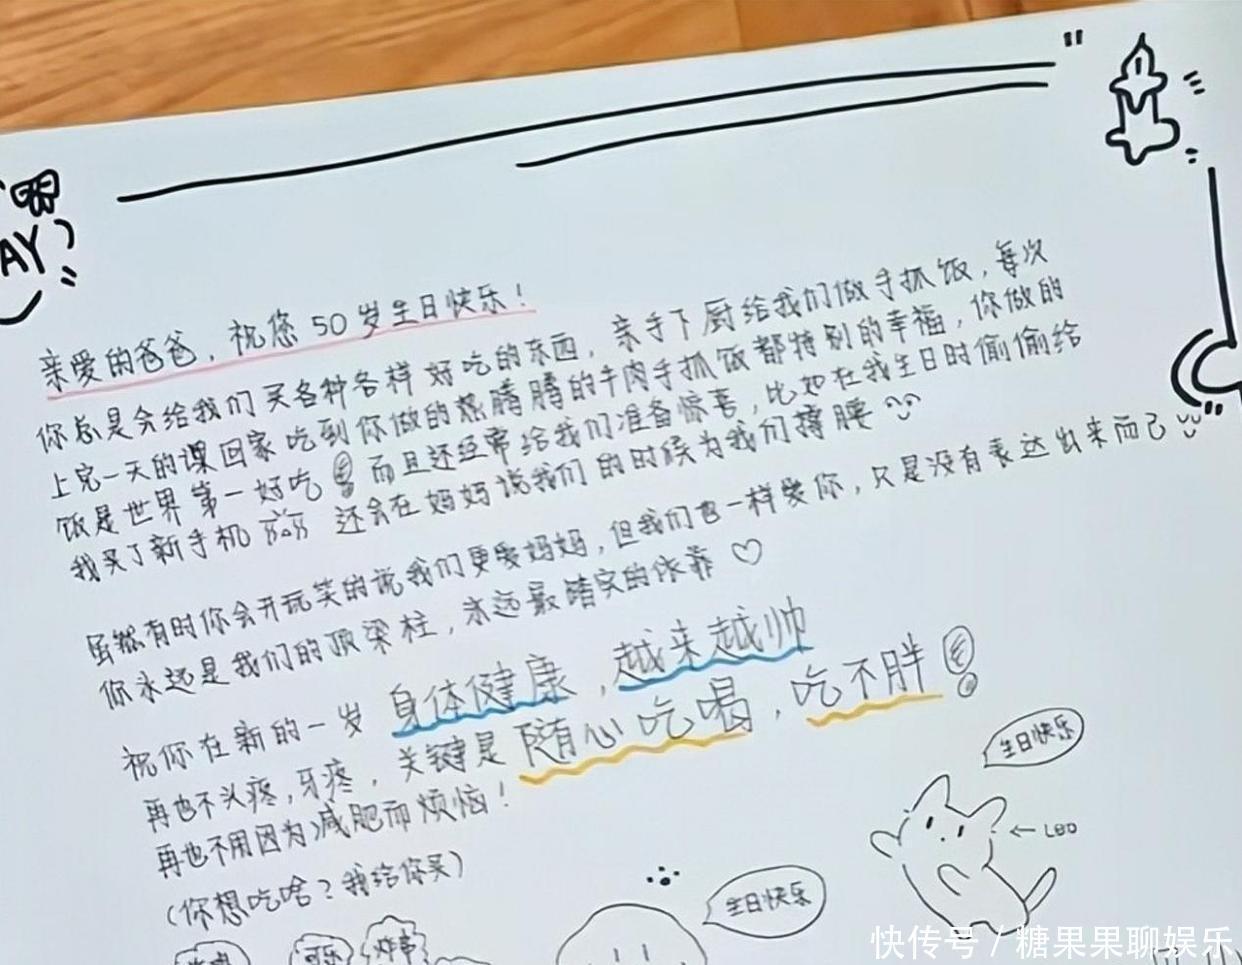 AY
亲爱的爸爸，祝您50岁生日快乐！
你总是会给我们买各种各样好吃的东西，亲手下厨给我们做手抓饭，每次
上完一天的课回家吃到你做的热腾腾的牛肉手抓饭都特别的幸福，你做的
饭是世界第一好吃 而且还经常给我们准备惊喜，比如在我生日时偷偷给
我买了新手机 还会在妈妈说我们的时候为我们撑腰
虽然有时你会开玩笑的说我们更爱妈妈，但我们也一样爱你，只是没有表达出来而已
你永远是我们的顶梁柱，永远最踏实的依靠♡
祝你在新的一岁 身体健康，越来越帅
再也不头疼，牙疼，关键是随心吃喝，吃不胖
再也不用因为减肥而烦恼！
（你想吃啥？我给你买）
生日快乐
← LEO
生日快乐
可乐
炸串
快传号 / 糖果果聊娱乐